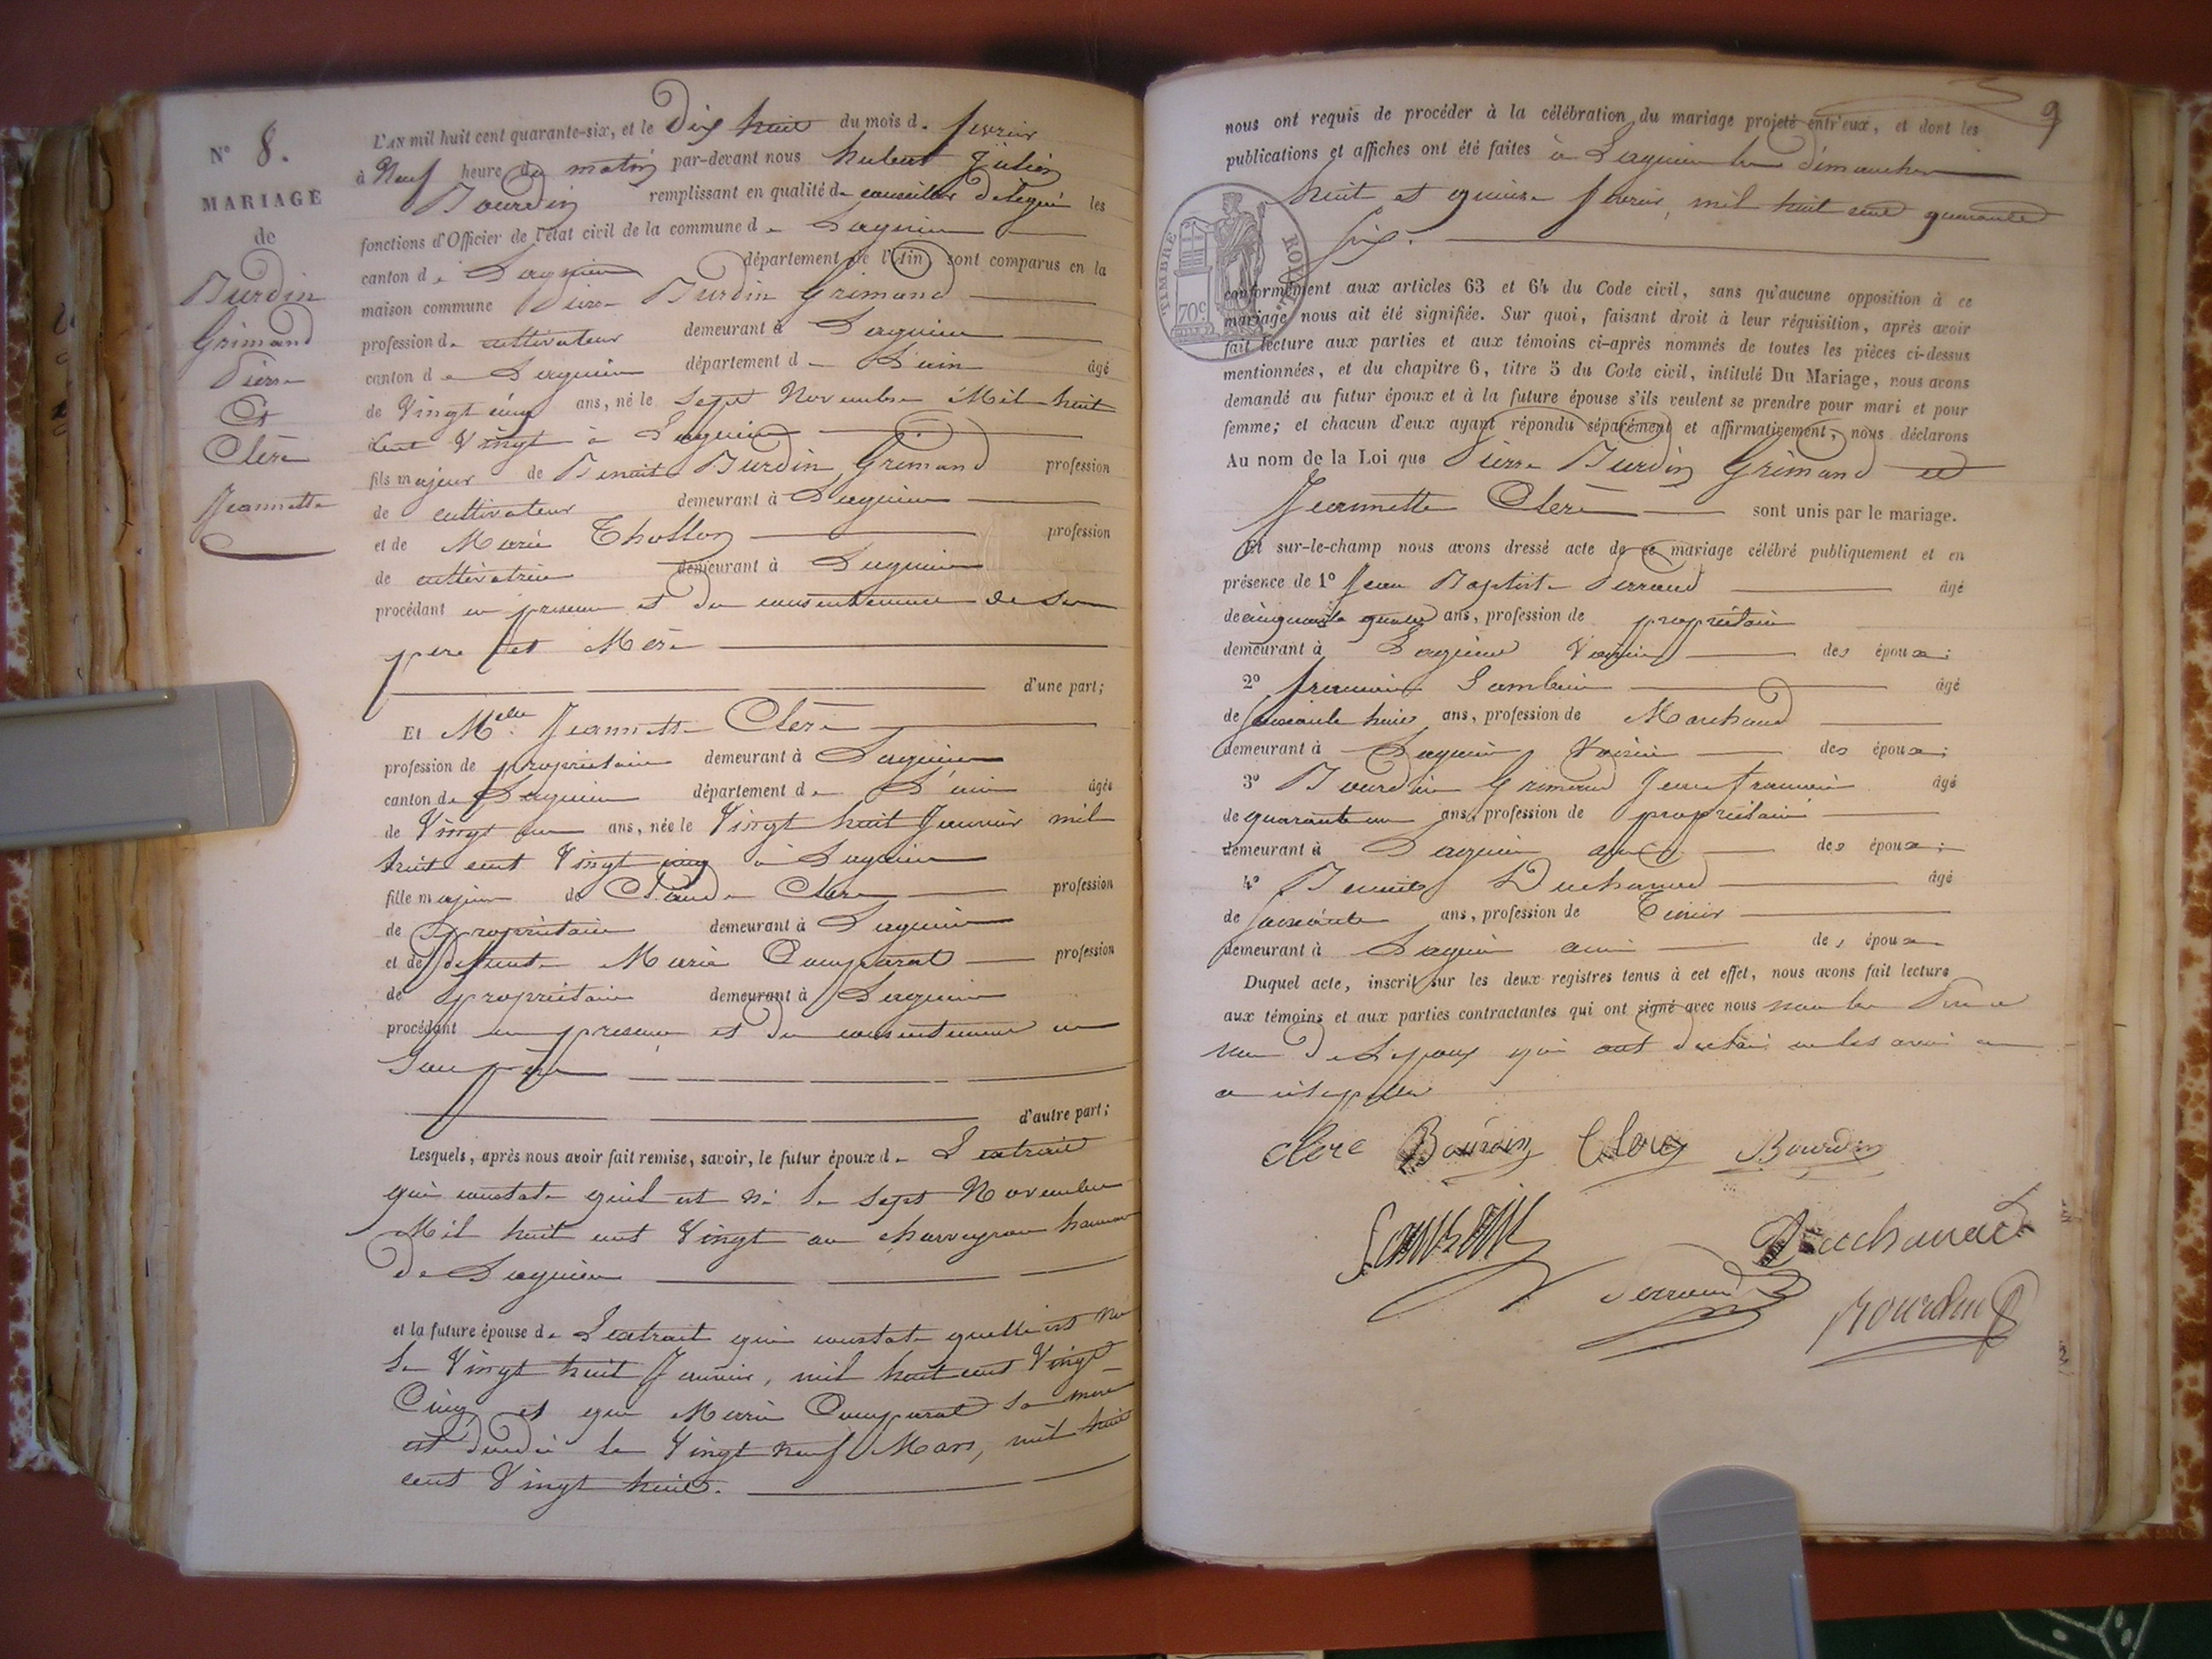 N° 8.
MARIAGE
de
Burdin
Grimand
Pierre
Et
Clerc
Jeannette
L'AN mil huit cent quarante-six, et le Dix huit du mois de fevrier
à Neuf heure du matin par-devant nous hubert Julien
Bourdin remplissant en qualité de conseiller délégué les
fonctions d'Officier de l'état civil de la commune de Lagnieu
canton de Lagnieu département de l'Ain sont comparus en la
maison commune Pierre Burdin Grimand
profession de cultivateur demeurant à Lagnieu
canton de Lagnieu département de L'ain âgé
de Vingt cinq ans, né le sept Novembre Mil huit
Cent Vingt à Lagnieu
fils majeur de Benoit Burdin Grimand profession
de cultivateur demeurant à Lagnieu
et de Marie Thollon profession
de cultivatrice demeurant à Lagnieu
procédant en presence et du consentement de ses
pere et Mere
d'une part;
Et Melle Jeannette Clerc
profession de propriétaire demeurant à Lagnieu
canton de Lagnieu département de L'ain âgée
de Vingt un ans, née le Vingt huit Janvier mil
huit cent Vingt cinq à Lagnieu
fille majeure de Claude Clerc profession
de propriétaire demeurant à Lagnieu
et de defunte Marie Comparat profession
de propriétaire demeurant à Lagnieu
procédant en presence et du consentement de
Son père
d'autre part;
Lesquels, après nous avoir fait remise, savoir, le futur époux de L'extrait
qui constate qu'il est né le sept Novembre
Mil huit cent Vingt au charveyron hameau
de Lagnieu
et la future épouse de L'extrait qui constate quelle est née
le Vingt huit Janvier, mil huit cent Vingt
Cinq et que Marie Comparat sa mere
est décédée le Vingt neuf Mars, mil huit
cent Vingt huit.
9
nous ont requis de procéder à la célébration du mariage projeté entr'eux, et dont les
publications et affiches ont été faites à Lagnieu les dimanches
huit et quinze fevrier, mil huit cent quarante
six.
TIMBRE ROYAL
70c
conformément aux articles 63 et 64 du Code civil, sans qu'aucune opposition à ce
mariage nous ait été signifiée. Sur quoi, faisant droit à leur réquisition, après avoir
fait lecture aux parties et aux témoins ci-après nommés de toutes les pièces ci-dessus
mentionnées, et du chapitre 6, titre 5 du Code civil, intitulé Du Mariage, nous avons
demandé au futur époux et à la future épouse s'ils veulent se prendre pour mari et pour
femme; et chacun d'eux ayant répondu séparément et affirmativement, nous déclarons
Au nom de la Loi que Pierre Burdin Grimand et
Jeannette Clerc sont unis par le mariage.
Et sur-le-champ nous avons dressé acte de ce mariage célébré publiquement et en
présence de 1° Jean Baptiste Perraud âgé
de cinquante quatre ans, profession de propriétaire
demeurant à Lagnieu Voisin des époux;
2° francois Sambain âgé
de soixante huit ans, profession de Marchand
demeurant à Lagnieu Voisin des époux;
3° Bourdin Grimand Jean francois âgé
de quarante un ans, profession de propriétaire
demeurant à Lagnieu des époux;
4° Benoit Duchanard âgé
de soixante ans, profession de
demeurant à Lagnieu ami des époux
Duquel acte, inscrit sur les deux registres tenus à cet effet, nous avons fait lecture
aux témoins et aux parties contractantes qui ont signé avec nous non les Pere et
Mere de Lepoux qui ont declaré ne les avoir
clerc Bourdin Clerc Bourdin
Sambain Duchanard
Perraud Bourdin